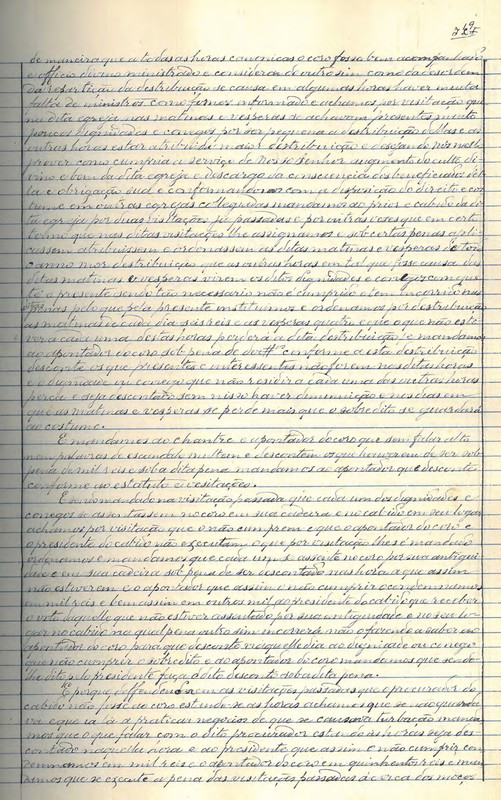 de maneira que a todas as horas canonicas o coro fosse bem acompanhado
e officio divino ministrado e considerando outrosim como da desordem
da repartição da destribuição se causa em algumas horas haver muita
falta de ministros como fomos informado e achamos por visitação que
na dita egreja nas matinas e vesperas se achavam presentes muito
poucos dignidades e conegos por ser pequena a destribuição dellas e as
outras horas estar atribuida maior destribuição e desejando nós nisto
prover como cumpria a serviço de Nosso Senhor augmento do culto di-
vino e bem da dita egreja e descargo da consciencia dos beneficiados del-
la e obrigação sua e conformando-nos com a disposição de direito e cos-
tume em outras egrejas collegiadas mandamos ao prior e cabido da di-
ta egreja por duas visitações já passadas e por outras vezes que em certo
termo que nas ditas visitações lhe assignamos e sob certas penas apli-
cassem atribuissem e ordenassem ás ditas matinas e vesperas de todo
o anno mor destribuição que as outras horas em tal que fosse causa das
ditas matinas e vesperas virem os ditos dignidades e conegos como que
até o presente sendo tão necessario não é cumprido e tem incorrido nas
penas pelo que pela presente instituimos e ordenamos por destribuição
ás matinas de cada dia seis reis e ás vesperas quatro e do que não esti-
ver a cada uma destas horas perderá a dita destribuição e mandamos
ao apontador do coro sob pena de conforme a esta destribuição
desconte os que presentes e interessentes não forem nas ditas horas
e o dignidade ou conego que não residir a cada uma das outras horas
perca e seja descontado sem nisso haver deminuição e nos dias em
que ás matinas e vesperas se perde mais que o sobredito se guardará
o costume.
E mandamos ao chantre e apontador do coro que sem fallar alto
nem palavras de escandalo multem e descontem os que houverem de ser sob
pena de mil reis e sob a dita pena mandamos ao apontador que desconte
conforme ao estatuto e visitações.
E mandado na visitação passada que cada um dos dignidades e
conegos se assentassem no coro em sua cadeira e no cabido em seu logar
achamos por visitação que o não cumprem e que o apontador do coro e
o presidente do cabido não executam o que por visitação lhes é mandado
ordenamos e mandamos que cada um se assente no coro por sua antigui-
dade e em sua cadeira sob pena de ser descontado nas horas a que assim
não estiverem e o apontador que assim o não cumprir condemnamos
em mil reis e bem assim em outros mil ao presidente do cabido que receber
o voto daquelle que não estiver assentado por sua antiguidade e no seu lo-
gar no cabido na qual pena outrosim incorrerá não o fazendo a saber ao
apontador do coro para que desconte naquelle dia ao dignidade ou conego
que não cumprir o sobredito e ao apontador do coro mandamos que sendo-
lhe dito pelo presidente faça o dito desconto sob a dita pena.
E porque defendendo-se nas visitações passadas que o procurador do
cabido não fosse ao coro estando-se ás horas achamos que se não guarda-
va e que ia lá a praticar negocios de que se causava turbação manda-
mos que o que fallar com o dito procurador estando ás horas seja des-
contado naquella hora e ao presidente que assim o não cumprir con-
demnamos em mil reis e o apontador do coro em quinhentos reis e man-
damos que se execute a pena das visitações passadas ácerca dos moços